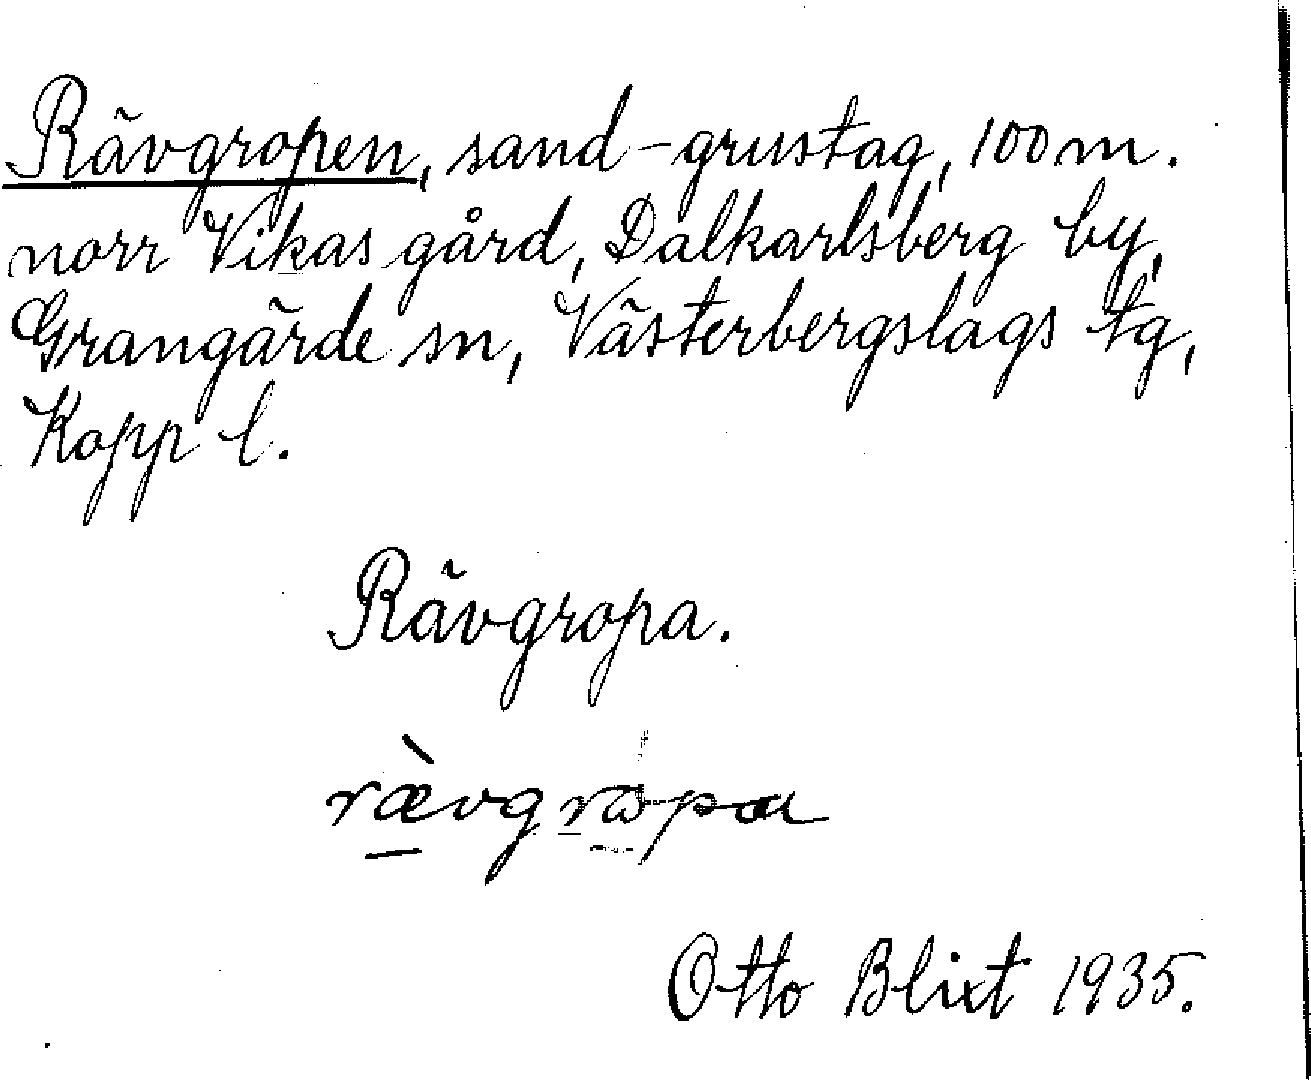 Rävgropen, sand-grustag, 100 m.
norr Vikas gård, Dalkarlsberg by,
Grangärde sn, Västerbergslags tg,
Kopp l.
Rävgropa.
Otto Blixt 1935.